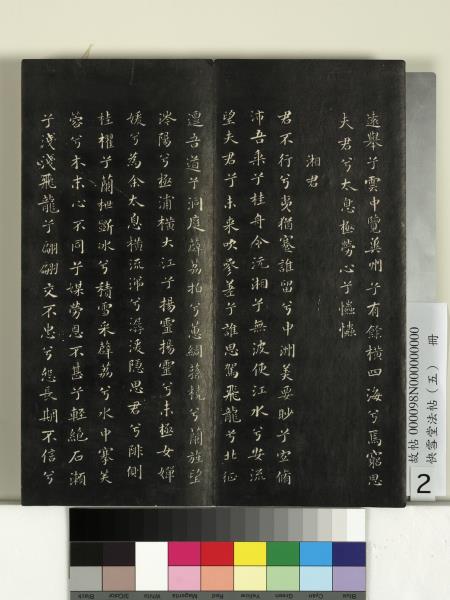 遠舉兮雲中覽冀州兮有餘橫四海兮焉窮思
夫君兮太息極勞心兮忡忡
湘君
君不行兮夷猶蹇誰留兮中洲美要眇兮宜脩
沛吾乘兮桂舟令沅湘兮無波使江水兮安流
望夫君兮未來吹參差兮誰思駕飛龍兮北征
邅吾道兮洞庭薜荔拍兮蕙綢蓀橈兮蘭旌望
涔陽兮極浦橫大江兮揚靈揚靈兮未極女嬋
媛兮為余太息橫流涕兮潺湲隱思君兮陫側
桂櫂兮蘭枻斲冰兮積雪采薜荔兮水中搴芙
蓉兮木末心不同兮媒勞恩不甚兮輕絕石瀨
兮淺淺飛龍兮翩翩交不忠兮怨長期不信兮
故帖 000098N000000000
快雪堂法帖（五） 冊
2
Black
3/Color
White
Magenta
Red
Yellow
Green
Cyan
Blue